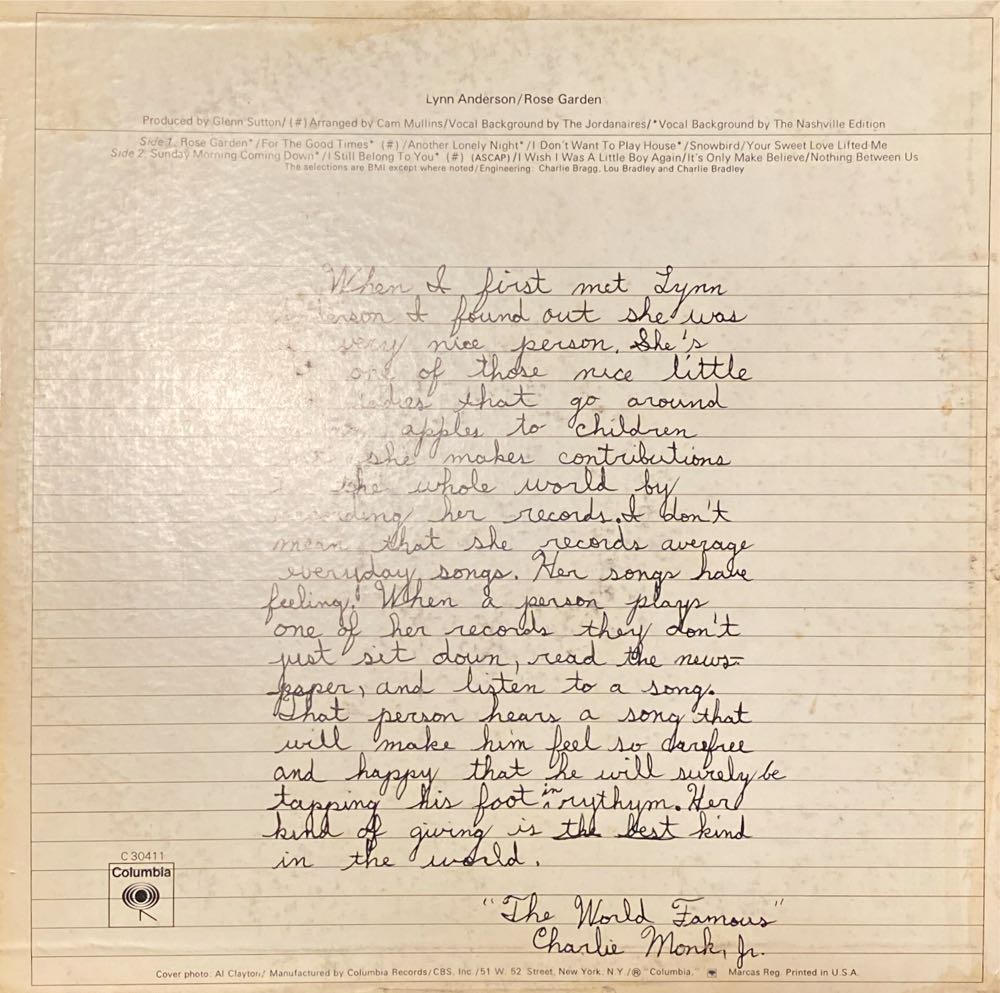 Lynn Anderson/Rose Garden
Produced by Glenn Sutton/(#)Arranged by Cam Mullins/Vocal Background by The Jordanaires/*Vocal Background by The Nashville Edition
Side 1. Rose Garden*/For The Good Times* (#)/Another Lonely Night*/I Don't Want To Play House*/Snowbird/Your Sweet Love Lifted Me
Side 2. Sunday Morning Coming Down*/I Still Belong To You* (#) (ASCAP)/I Wish I Was A Little Boy Again/It's Only Make Believe/Nothing Between Us
The selections are BMI except where noted/Engineering: Charlie Bragg, Lou Bradley and Charlie Bradley
When I first met Lynn
Anderson I found out she was
very nice person. She's
one of those nice little
ladies that go around
apples to children
she makes contributions
the whole world by
recording her records. I don't
mean that she records average
everyday songs. Her songs have
feeling! When a person plays
one of her records they don't
just sit down, read the news-
paper, and listen to a song.
That person hears a song that
will make him feel so carefree
and happy that he will surely be
tapping his foot in rythym. Her
kind of giving is the best kind
in the world.
"The World Famous"
Charlie Monk, Jr.
C 30411
Columbia
Cover photo: Al Clayton/ Manufactured by Columbia Records/CBS, Inc./51 W. 52 Street, New York, N.Y./® "Columbia," Marcas Reg. Printed in U.S.A.